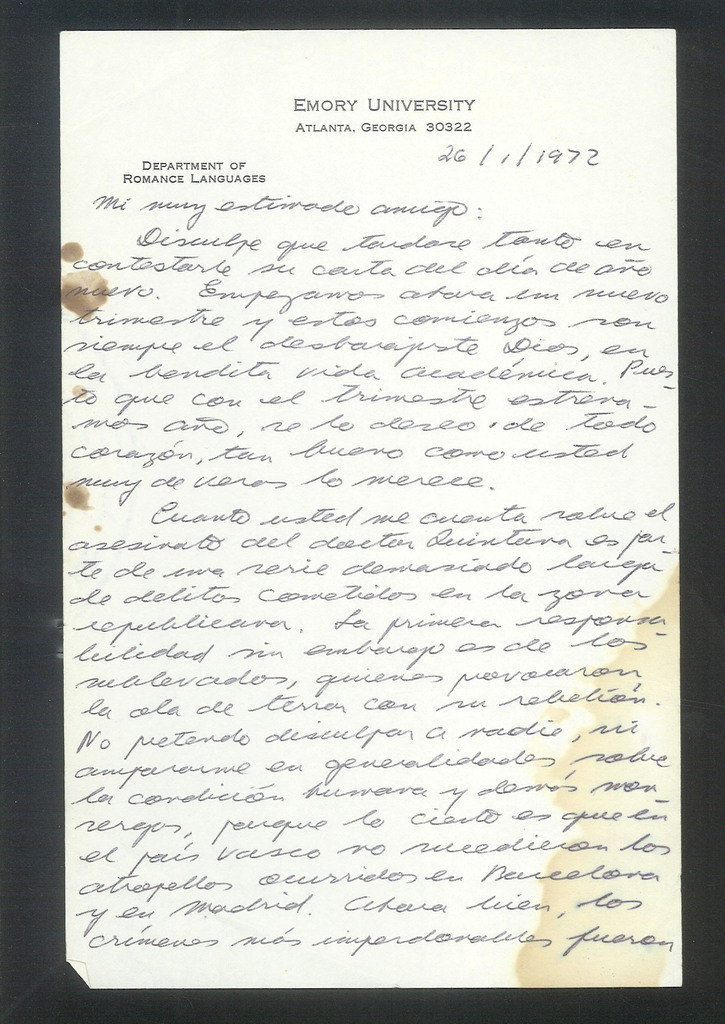 EMORY UNIVERSITY
ATLANTA, GEORGIA 30322
26/1/1972
DEPARTMENT OF
ROMANCE LANGUAGES
Mi muy estimado amigo:
Disculpe que tardase tanto en
contestarle su carta del día de año
nuevo. Empezamos ahora un nuevo
trimestre y estos comienzos son
siempre el desbarajuste Dios, en
la bendita vida académica. Pues-
to que con el trimestre estrena-
mos año, se lo deseo de todo
corazón, tan bueno como usted
muy de veras lo merece.
Cuanto usted me cuenta sobre el
asesinato del doctor Quintana es par-
te de una serie demasiado larga
de delitos cometidos en la zona
republicana. La primera responsa-
bilidad sin embargo es de los
sublevados, quienes provocaron
la ola de terror con su rebelión.
No pretendo disculpar a nadie, ni
ampararme en generalidades sobre
la condición humana y demás
porque lo cierto es que en
el país vasco no sucedieron los
atropellos ocurridos en Barcelona
y en Madrid. Ahora bien, los
crímenes más imperdonables fueron